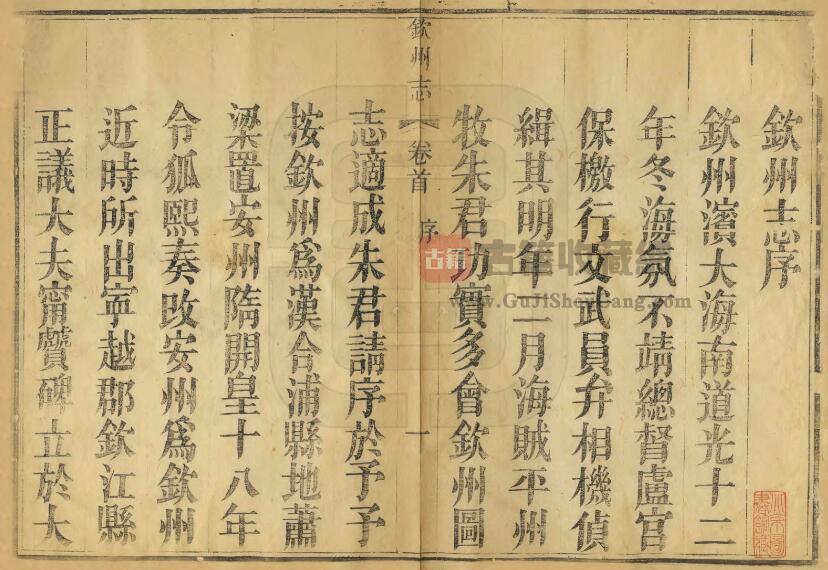 欽州志序
欽州濱大海南道光十二
年冬海氛不靖總督盧宮
保檄行文武員弁相機偵
緝其明年二月海賊平州
牧朱君功實多會欽州圖
欽州志
卷首
序
一
志適成朱君請序於予予
按欽州爲漢合浦縣地蕭
梁置安州隋開皇十八年
令狐熙奏改安州爲欽州
近時所出寧越郡欽江縣
正議大夫甯贙碑立於大
古籍
古籍收藏網
www.GuJiShouCang.com